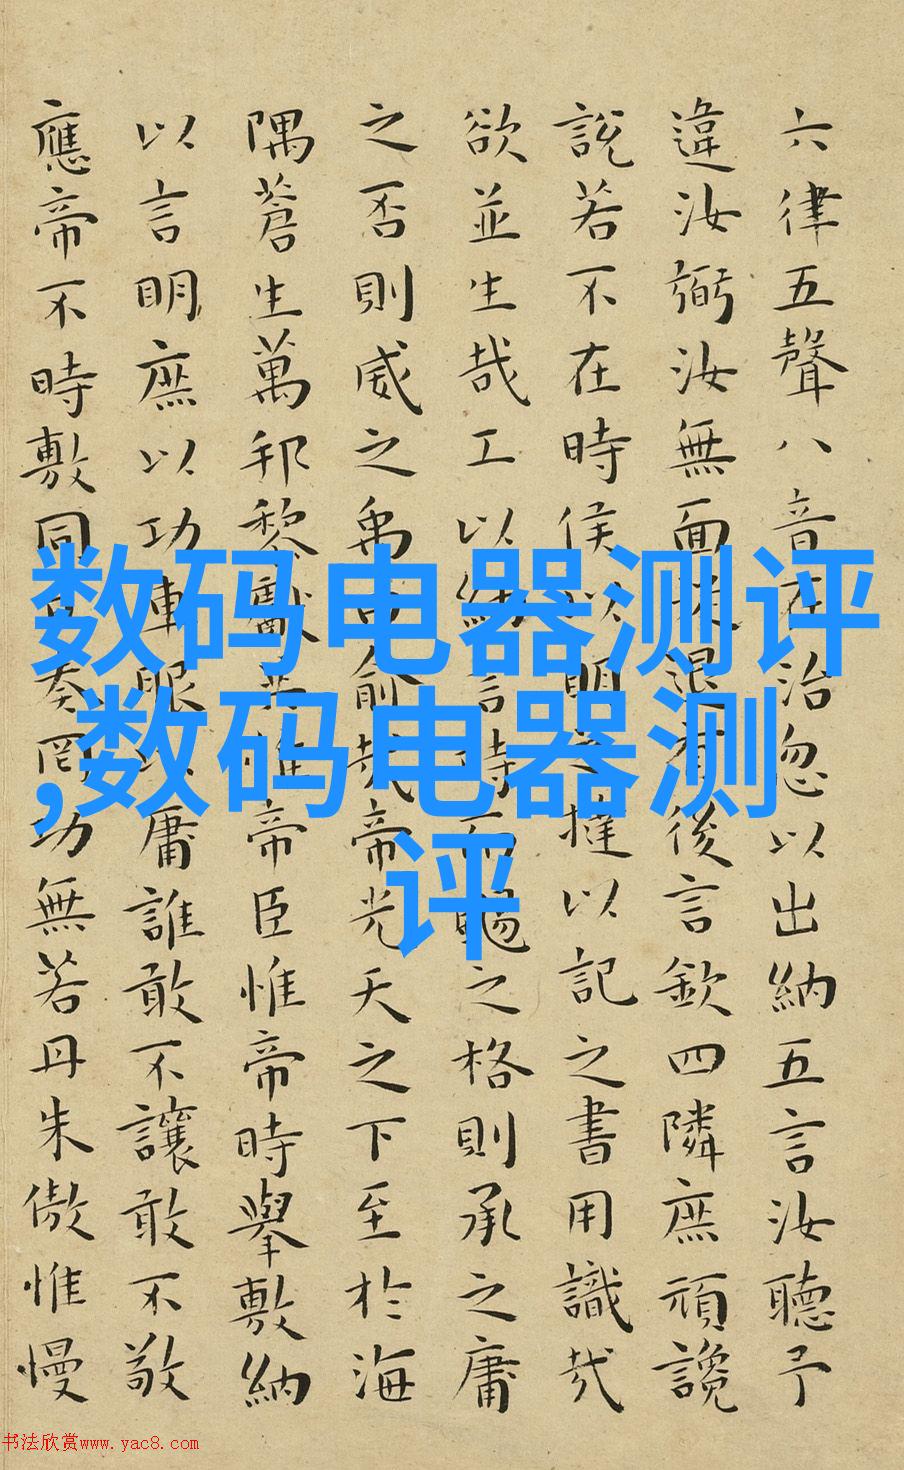 六律五聲八音在治忽以出納五言汝聽予
違汝弼汝無面從退有後言欽四隣庶頑讒
說若不在時侯以明之撻以記之書用識哉
欲並生哉工以納言時而颺之格則承之庸
之否則威之禹曰俞哉帝光天之下至於海
隅蒼生萬邦黎獻共惟帝臣惟帝時舉敷納
以言明庶以功車服以庸誰敢不讓敢不敬
應帝不時敷同日奏罔功無若丹朱傲惟慢
数码电器测评
,数码电器测
评
书法欣赏www.yac8.com